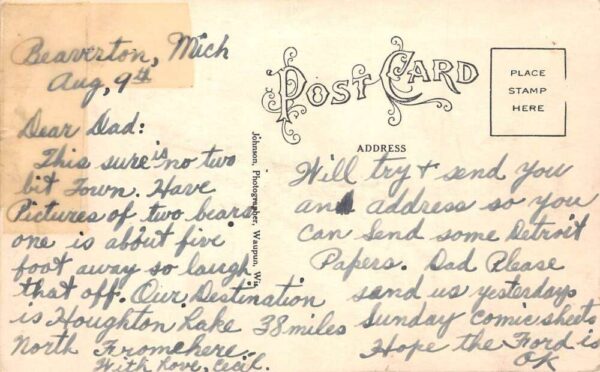 Beaverton, Mich
Aug, 9th
Dear Dad:
This sure is no two
bit Town. Have
Pictures of two bears
one is about five
foot away so laugh
that off. Our Destination
is Houghton Lake 38 miles
North Fromehere.
With Love, Cecil.
POST CARD
ADDRESS
PLACE
STAMP
HERE
Johnson, Photographer, Waupun, Wis.
Will try + send you
and address so you
can Send some Detroit
Papers. Dad Please
send us yesterdays
Sunday Comic sheets
Hope the Ford is
OK